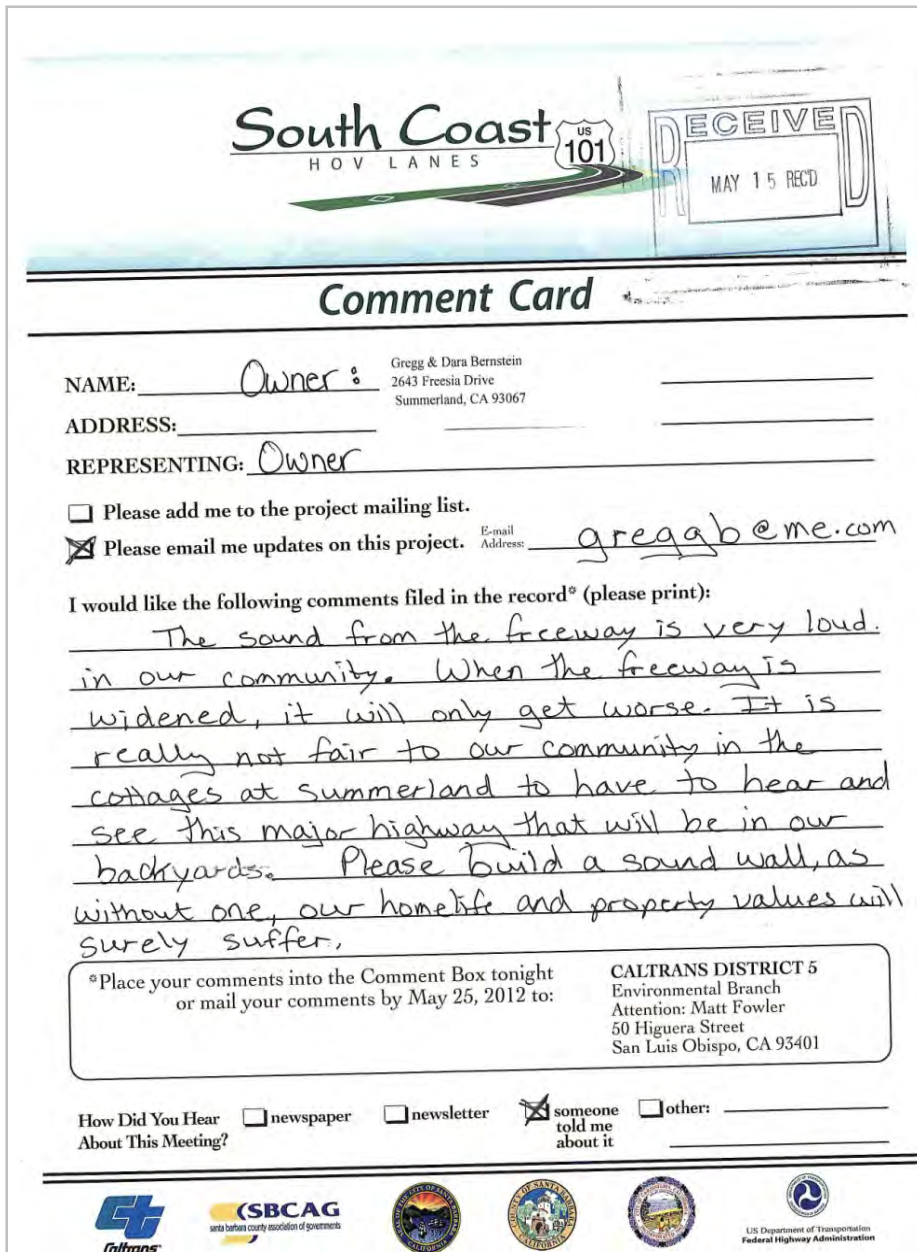 South Coast
HOV LANES
US
101
RECEIVED
MAY 15 REC'D
Comment Card
NAME: Owner:
Gregg & Dara Bernstein
2643 Freesia Drive
Summerland, CA 93067
ADDRESS:
REPRESENTING: Owner
Please add me to the project mailing list.
Please email me updates on this project. E-mail Address: greggb@me.com
I would like the following comments filed in the record* (please print):
The sound from the freeway is very loud.
in our community. When the freeway is
widened, it will only get worse. It is
really not fair to our community in the
cottages at Summerland to have to hear and
see this major highway that will be in our
backyards. Please build a sound wall, as
without one, our homelife and property values will
surely suffer.
*Place your comments into the Comment Box tonight
or mail your comments by May 25, 2012 to:
CALTRANS DISTRICT 5
Environmental Branch
Attention: Matt Fowler
50 Higuera Street
San Luis Obispo, CA 93401
How Did You Hear
About This Meeting?
newspaper
newsletter
someone
told me
about it
other:
Caltrans
SBCAG
santa barbara county association of governments
US Department of Transportation
Federal Highway Administration